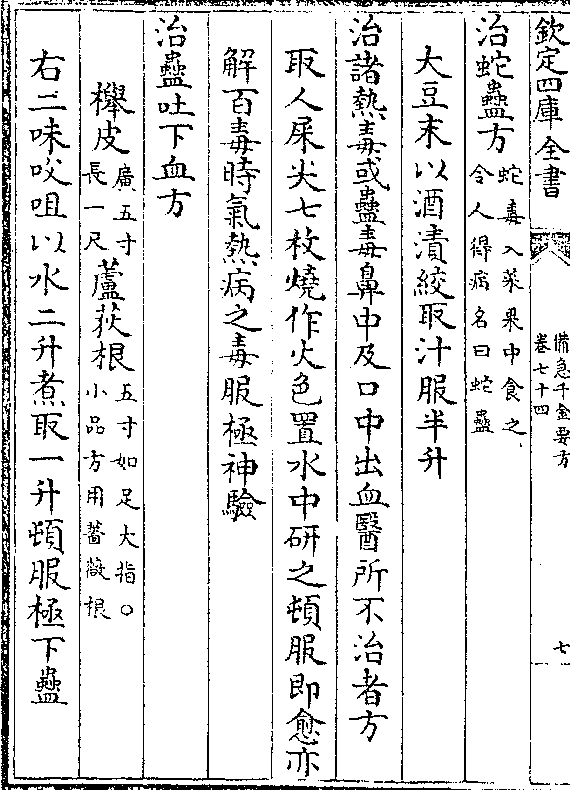 欽定四庫全書
備急千金要方
卷七十四
七
治蛇蠱方
蛇毒入菜果中食之
令人得病名曰蛇蠱
大豆末以酒漬絞取汁服半升
治諸熱毒或蠱毒鼻中及口中出血醫所不治者方
取人屎尖七枚燒作火色置水中研之頓服即愈亦
解百毒時氣熱病之毒服極神驗
治蠱吐下血方
櫸皮
廣五寸
長一尺
蘆荻根
五寸如足大指○
小品方用薔薇根
右二味㕮咀以水二升煮取一升頓服極下蠱